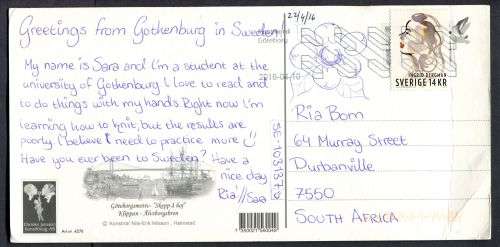 Greetings from Gothenburg in Sweden!
My name is Sara and I'm a student at the
university of Gothenburg I love to read and
to do things with my hands Right now I'm
learning how to knit, but the results are
poorly I believe I need to practice more
Have you ever been to Sweden? Have a
nice day
Ria! //Sara
Göteborgsmotiv "Skepp å hoj"
Klippan - Älvsborgsbron
© Konstnär Nils-Erik Nilsson, Halmstad
Art.nr 4076
22/4/16
2016-05-10
SE-103137
INGRID BERGMAN
SVERIGE 14 KR
Ria Born
64 Murray Street
Durbanville
7550
SOUTH AFRICA